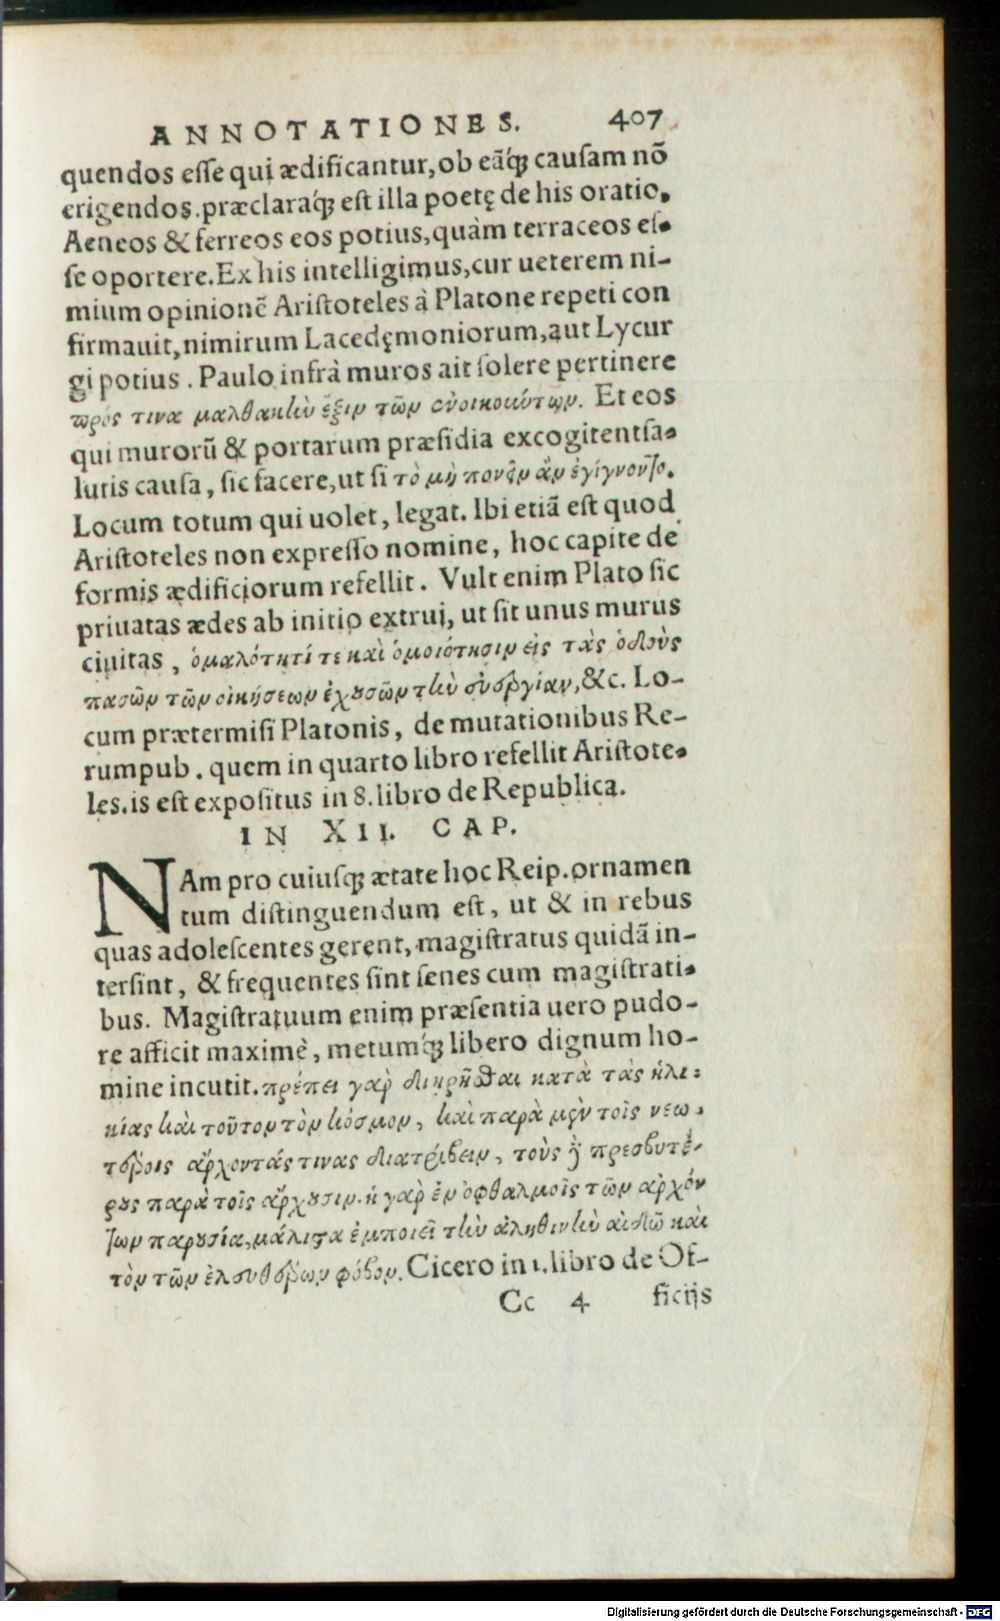 ANNOTATIONES. 407
quendos esse qui ædificantur, ob eãq́; causam nõ
erigendos. præclaraq́; est illa poetę de his oratio.
Aeneos & ferreos eos potius, quàm terraceos es-
se oportere. Ex his intelligimus, cur ueterem ni-
mium opinionẽ Aristoteles à Platone repeti con
firmauit, nimirum Lacedęmoniorum, aut Lycur
gi potius. Paulo infrà muros ait solere pertinere
πρός τινα μαλθακὴν ἕξιν τῶν ἐνοικούντων. Et eos
qui murorũ & portarum præsidia excogitent sa-
lutis causa, sic facere, ut si τὸ μὴ πονεῖν ἂν ἐγίγνοντο.
Locum totum qui uolet, legat. Ibi etiã est quod
Aristoteles non expresso nomine, hoc capite de
formis ædificiorum refellit. Vult enim Plato sic
priuatas ædes ab initio extrui, ut sit unus murus
ciuitas, ὁμαλότητί τε καὶ ὁμοιότησιν εἰς τὰς ὁδοὺς
πασῶν τῶν οἰκήσεων ἐχουσῶν τὴν εὐέργειαν, &c. Lo-
cum prætermisi Platonis, de mutationibus Re-
rumpub. quem in quarto libro refellit Aristote-
les. is est expositus in 8. libro de Republica.
IN XII. CAP.
NAm pro cuiusq; ætate hoc Reip. ornamen
tum distinguendum est, ut & in rebus
quas adolescentes gerent, magistratus quidã in-
tersint, & frequentes sint senes cum magistrati-
bus. Magistratuum enim præsentia uero pudo-
re afficit maximè, metumq́; libero dignum ho-
mine incutit. πρέπει γὰρ διῃρῆσθαι κατὰ τὰς ἡλι-
κίας καὶ τοῦτον τὸν κόσμον, καὶ παρὰ μὲν τοῖς νεω-
τέροις ἄρχοντάς τινας διατρίβειν, τοὺς δὲ πρεσβυτέ-
ρους παρὰ τοῖς ἄρχουσιν. ἡ γὰρ ἐν ὀφθαλμοῖς τῶν ἀρχόν
των παρουσία, μάλιστα ἐμποιεῖ τὴν ἀληθινὴν αἰδῶ καὶ
τὸν τῶν ἐλευθέρων φόβον. Cicero in 1. libro de Of-
Cc 4 ficijs
Digitalisierung gefördert durch die Deutsche Forschungsgemeinschaft - DFG